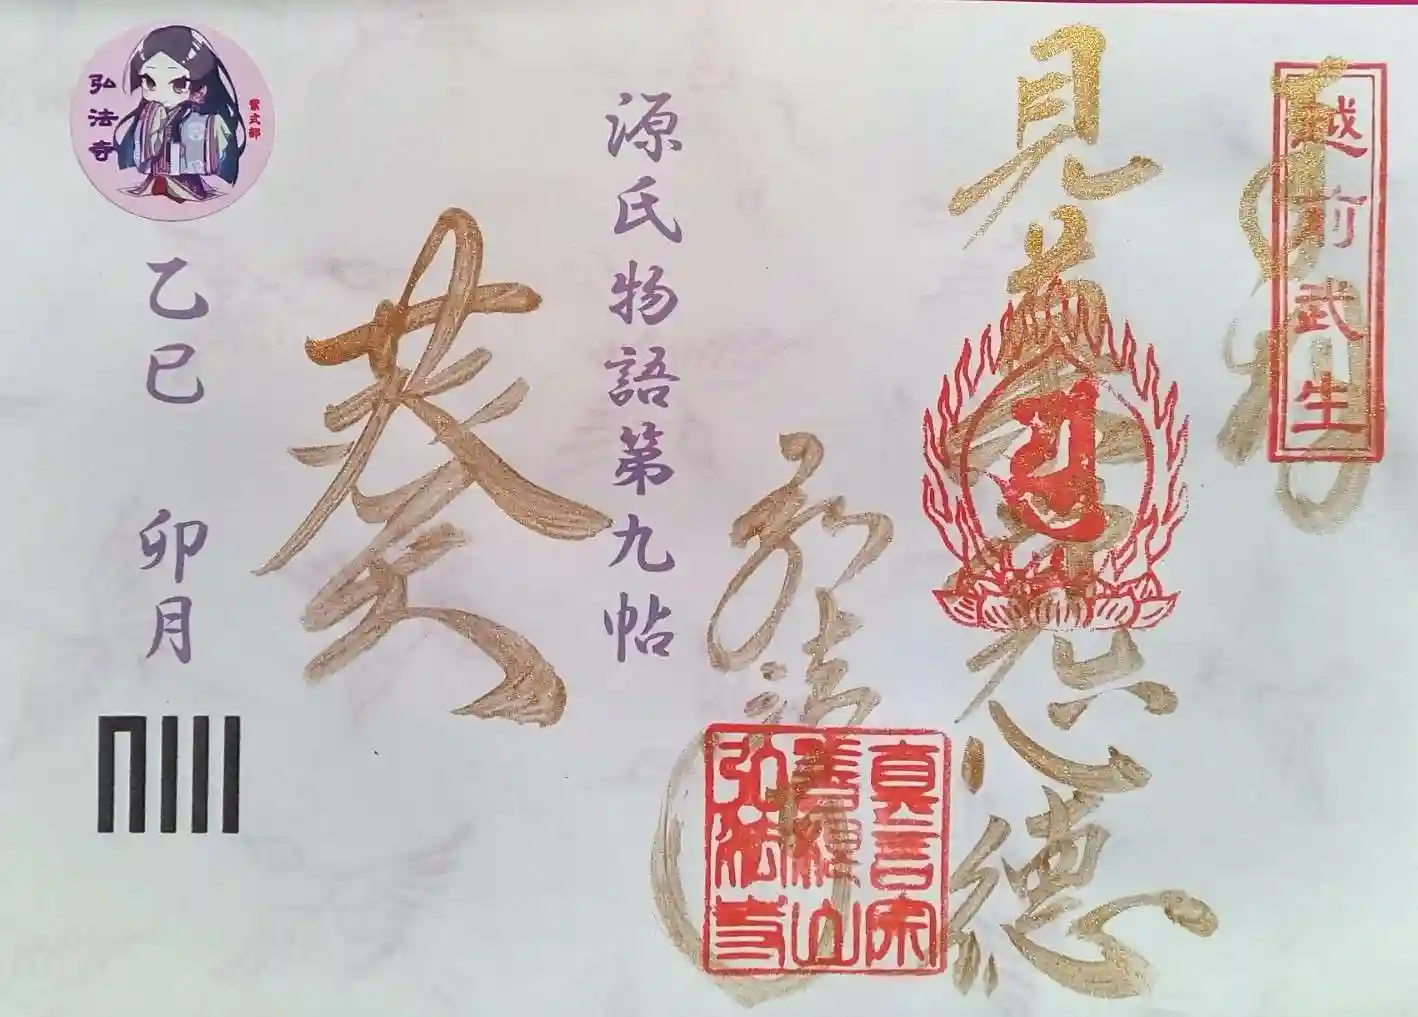 奉拝
越前武生
見善尽思徳
弘法寺
真言宗
善穏山
弘法寺
源氏物語第九帖
葵
弘法寺
紫式部
乙巳 卯月